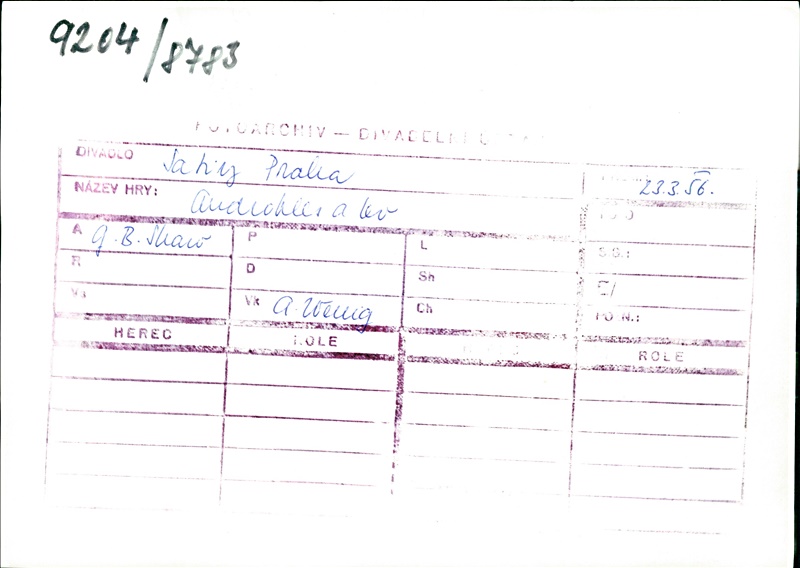 9204/8783
FOTOARCHIV — DIVADELNÍ
DIVADLO Satiry Praha
23.3.56.
NÁZEV HRY: Androkles a lev
FOTO
A G.B. Shaw P L S.G.:
R D Sh Z/
Vs Vk A. Wenig Ch FO N.:
HEREC ROLE ROLE